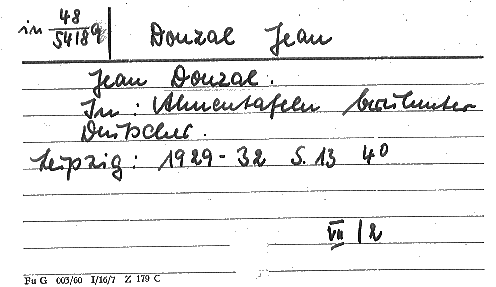 in 48/5418q Douzal Jean
Jean Douzal.
In: Ahnentafeln berühmter
Deutscher.
Leipzig: 1929-32 S. 13 40
VII/2
Fu G 003/60 I/16/7 Z 179 C